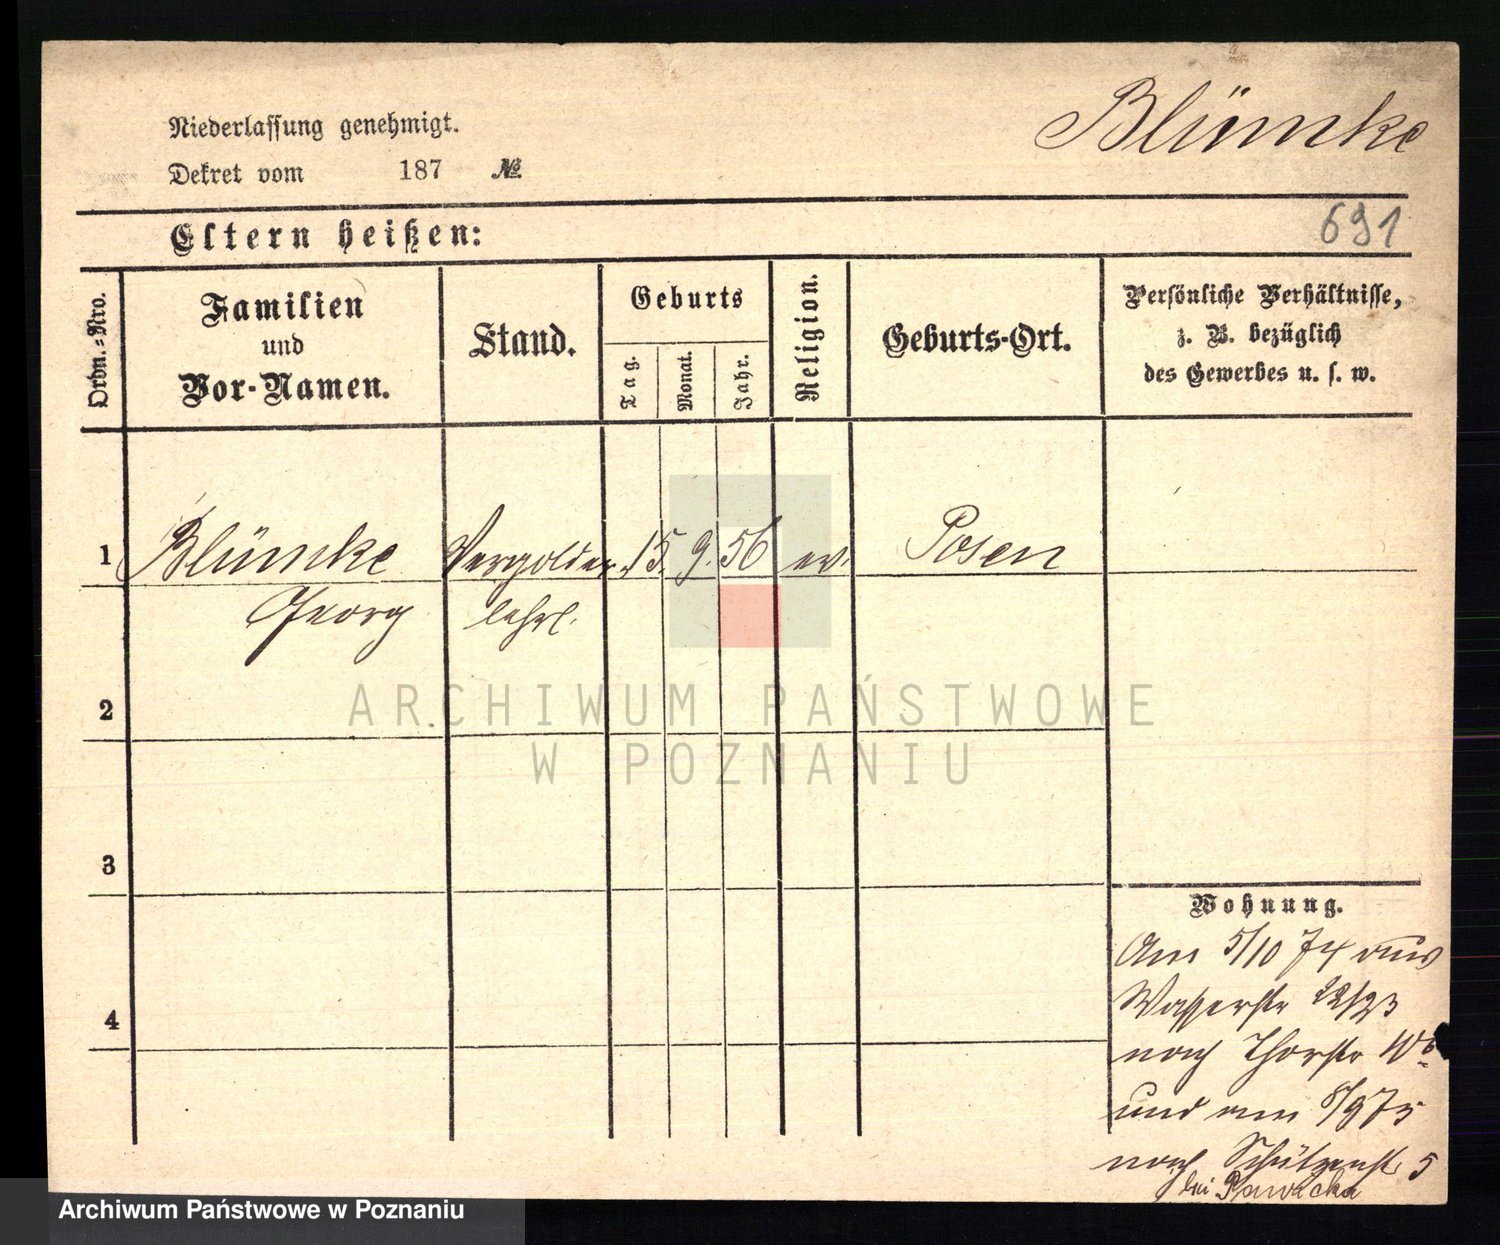 Blümke
Niederlassung genehmigt.
Dekret vom 187 №
691
Eltern heißen:
Ordn.-Nro.
Familien
und
Vor-Namen.
Stand.
Geburts
Tag.
Monat.
Jahr.
Religion.
Geburts-Ort.
Persönliche Verhältnisse,
z. B. bezüglich
des Gewerbes u. s. w.
1 Blümke Vergolder 15. 9. 56 ev. Posen
Georg lehrl.
2
ARCHIWUM PAŃSTWOWE
W POZNANIU
3
4
Wohnung.
Am 5/10 74 aus
Wasserstr 22/23
nach Thorstr 10b
und am 8/9 75
nach Schützenst 5
bei Rawicka
Archiwum Państwowe w Poznaniu